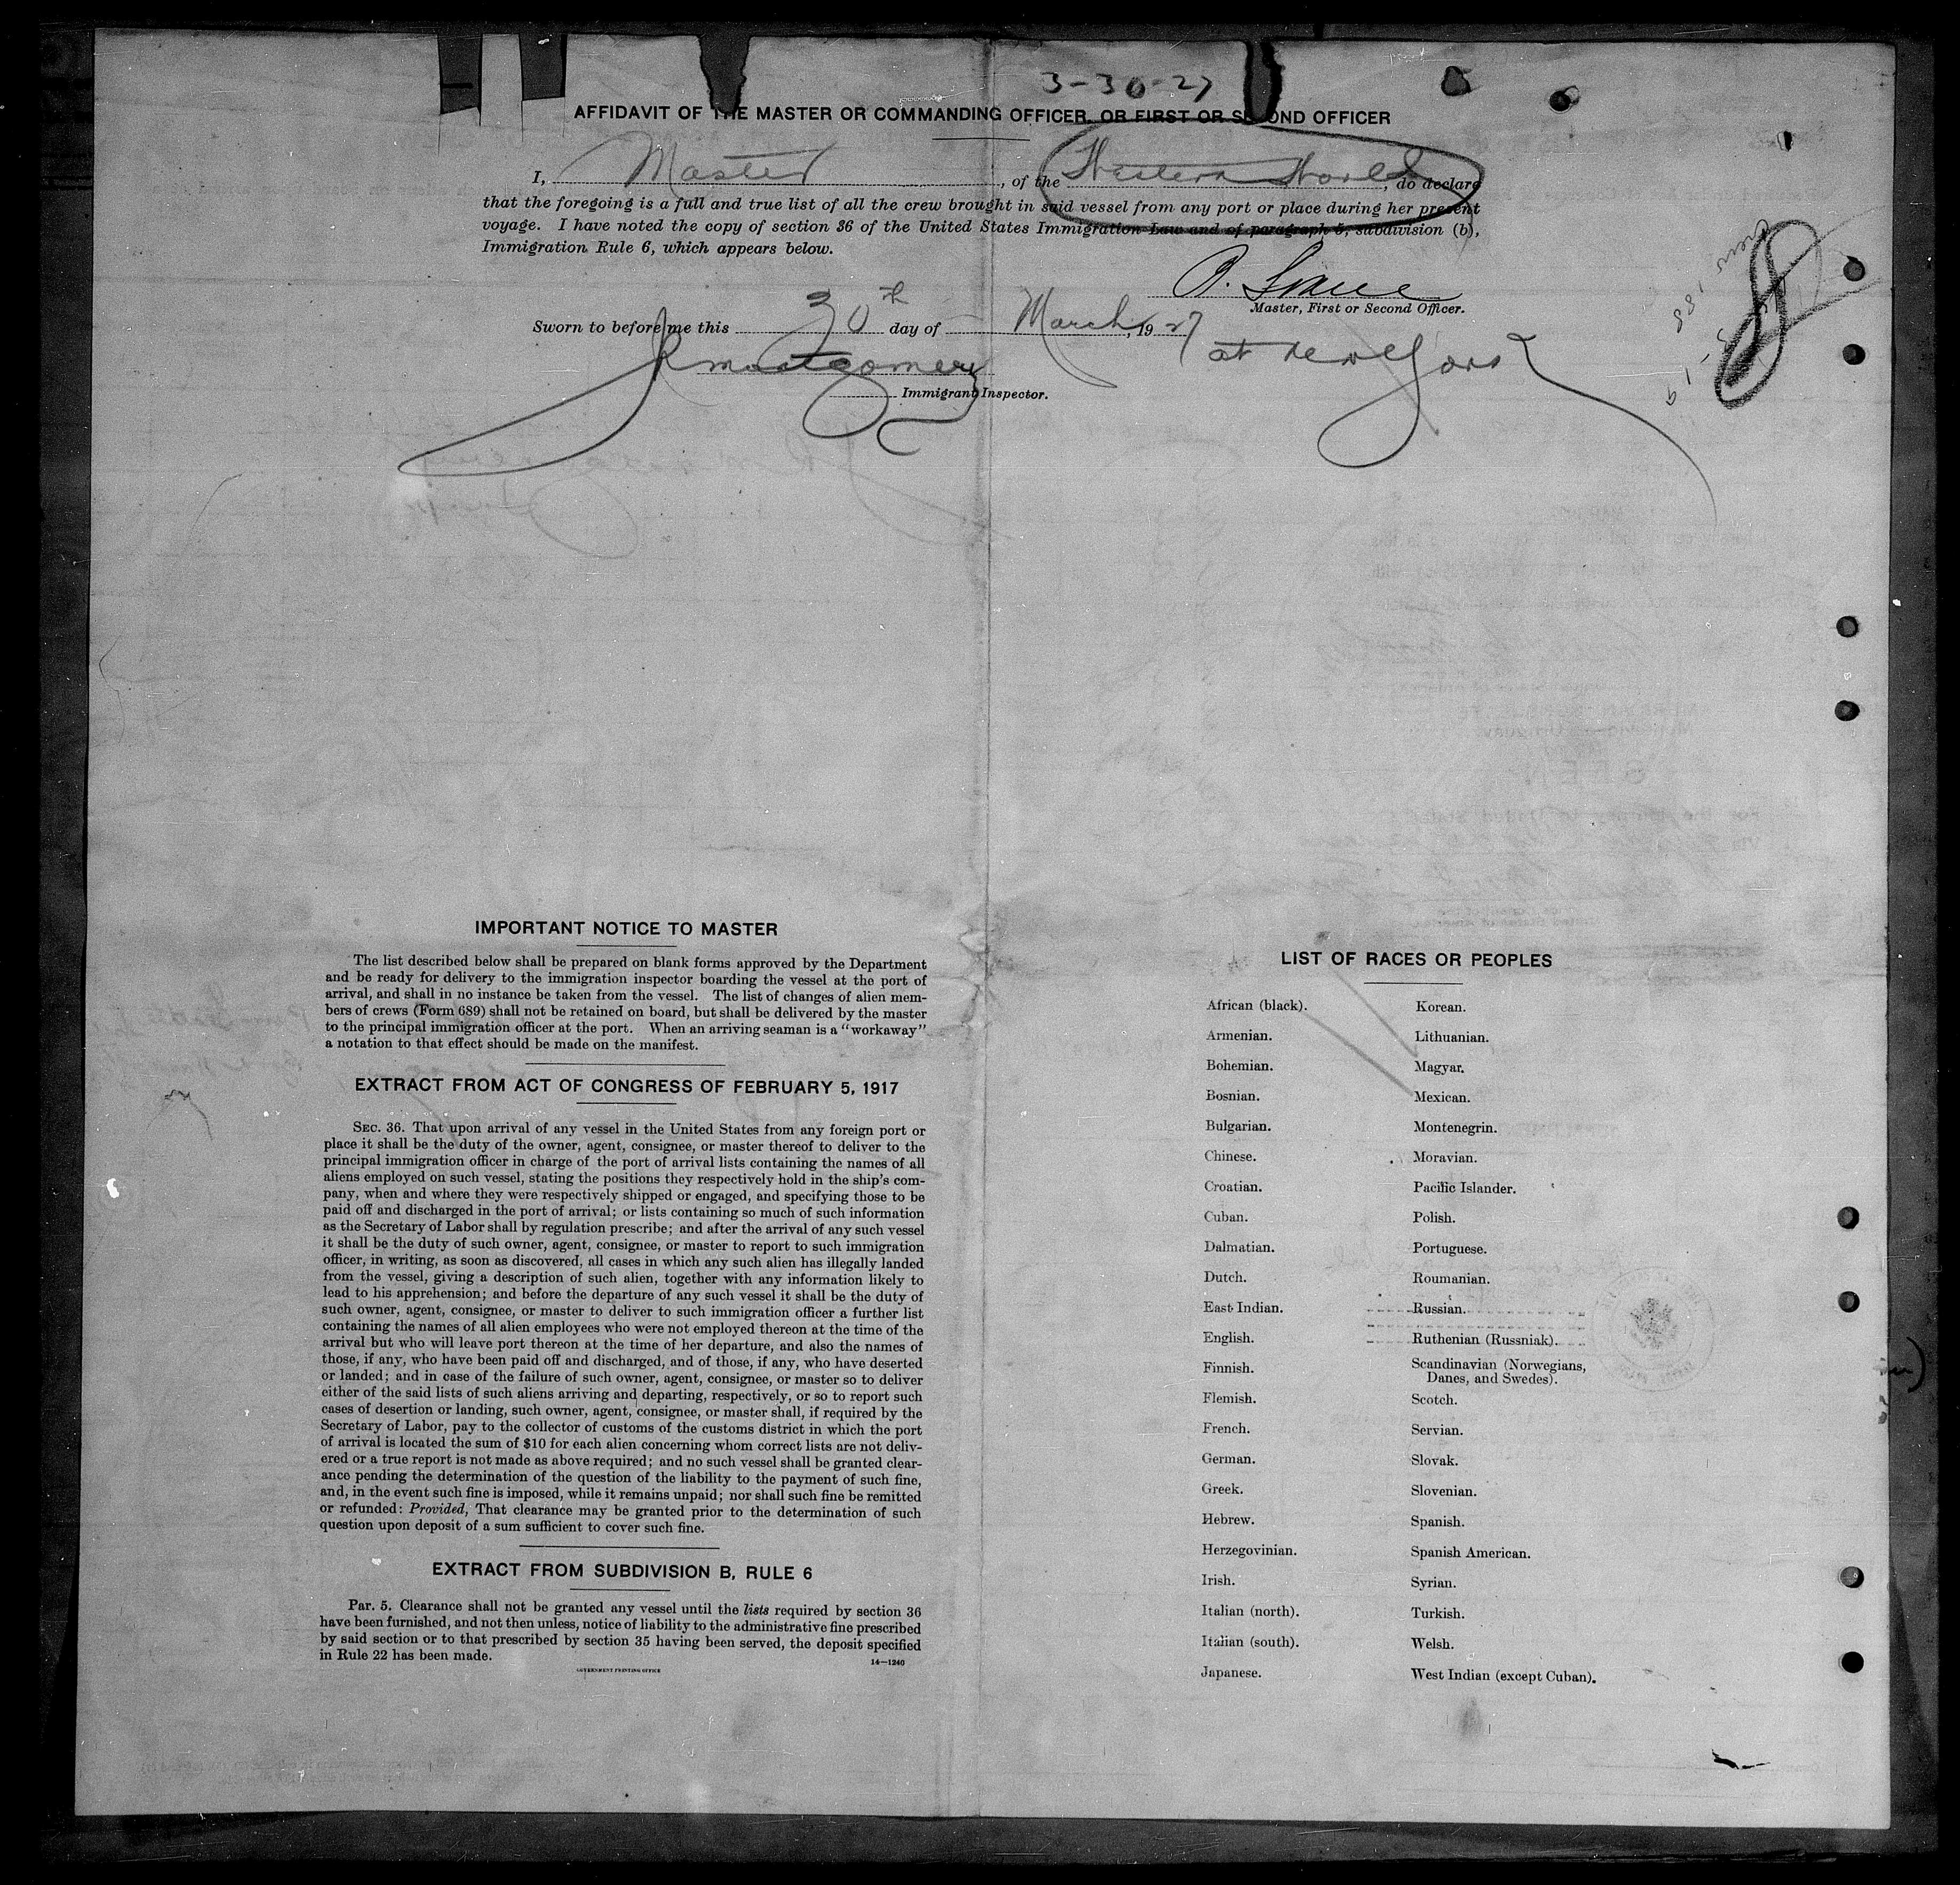 3-30-27
AFFIDAVIT OF THE MASTER OR COMMANDING OFFICER, OR FIRST OR SECOND OFFICER
I, Master, of the Western World, do declare
that the foregoing is a full and true list of all the crew brought in said vessel from any port or place during her present
voyage. I have noted the copy of section 36 of the United States Immigration Law and of paragraph 5, subdivision (b),
Immigration Rule 6, which appears below.
Master, First or Second Officer.
Sworn to before me this 30th day of March, 1927
at New York
Montgomery
Immigrant Inspector.
IMPORTANT NOTICE TO MASTER
The list described below shall be prepared on blank forms approved by the Department
and be ready for delivery to the immigration inspector boarding the vessel at the port of
arrival, and shall in no instance be taken from the vessel. The list of changes of alien mem-
bers of crews (Form 689) shall not be retained on board, but shall be delivered by the master
to the principal immigration officer at the port. When an arriving seaman is a "workaway"
a notation to that effect should be made on the manifest.
EXTRACT FROM ACT OF CONGRESS OF FEBRUARY 5, 1917
SEC. 36. That upon arrival of any vessel in the United States from any foreign port or
place it shall be the duty of the owner, agent, consignee, or master thereof to deliver to the
principal immigration officer in charge of the port of arrival lists containing the names of all
aliens employed on such vessel, stating the positions they respectively hold in the ship's com-
pany, when and where they were respectively shipped or engaged, and specifying those to be
paid off and discharged in the port of arrival; or lists containing so much of such information
as the Secretary of Labor shall by regulation prescribe; and after the arrival of any such vessel
it shall be the duty of such owner, agent, consignee, or master to report to such immigration
officer, in writing, as soon as discovered, all cases in which any such alien has illegally landed
from the vessel, giving a description of such alien, together with any information likely to
lead to his apprehension; and before the departure of any such vessel it shall be the duty of
such owner, agent, consignee, or master to deliver to such immigration officer a further list
containing the names of all alien employees who were not employed thereon at the time of the
arrival but who will leave port thereon at the time of her departure, and also the names of
those, if any, who have been paid off and discharged, and of those, if any, who have deserted
or landed; and in case of the failure of such owner, agent, consignee, or master so to deliver
either of the said lists of such aliens arriving and departing, respectively, or so to report such
cases of desertion or landing, such owner, agent, consignee, or master shall, if required by the
Secretary of Labor, pay to the collector of customs of the customs district in which the port
of arrival is located the sum of $10 for each alien concerning whom correct lists are not deliv-
ered or a true report is not made as above required; and no such vessel shall be granted clear-
ance pending the determination of the question of the liability to the payment of such fine,
and, in the event such fine is imposed, while it remains unpaid; nor shall such fine be remitted
or refunded: Provided, That clearance may be granted prior to the determination of such
question upon deposit of a sum sufficient to cover such fine.
EXTRACT FROM SUBDIVISION B, RULE 6
Par. 5. Clearance shall not be granted any vessel until the lists required by section 36
have been furnished, and not then unless, notice of liability to the administrative fine prescribed
by said section or to that prescribed by section 35 having been served, the deposit specified
in Rule 22 has been made.
14—1240
GOVERNMENT PRINTING OFFICE
LIST OF RACES OR PEOPLES
African (black).
Armenian.
Bohemian.
Bosnian.
Bulgarian.
Chinese.
Croatian.
Cuban.
Dalmatian.
Dutch.
East Indian.
English.
Finnish.
Flemish.
French.
German.
Greek.
Hebrew.
Herzegovinian.
Irish.
Italian (north).
Italian (south).
Japanese.
Korean.
Lithuanian.
Magyar.
Mexican.
Montenegrin.
Moravian.
Pacific Islander.
Polish.
Portuguese.
Roumanian.
Russian.
Ruthenian (Russniak).
Scandinavian (Norwegians,
Danes, and Swedes).
Scotch.
Servian.
Slovak.
Slovenian.
Spanish.
Spanish American.
Syrian.
Turkish.
Welsh.
West Indian (except Cuban).